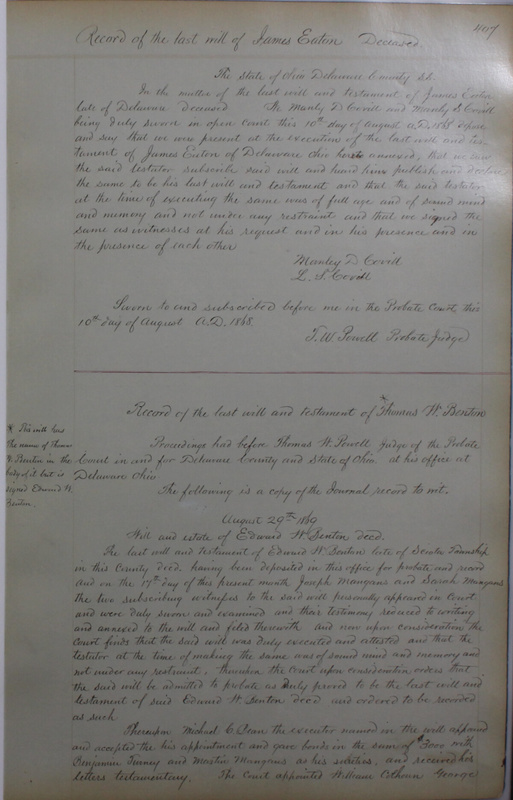 407
Record of the last will of James Eaton Deceased
The State of Ohio Delaware County SS.
In the matter of the last will and testament of James Eaton
late of Delaware deceased We Manly D Covill and Manly S. Covill
being duly sworn in open court this 10th day of August A.D. 1868 depose
and say that we were present at the execution of the last will and tes-
tament of James Eaton of Delaware ohio hereto annexed, that we saw
the said testator subscribe said will and heard him publish and declare
the same to be his last will and testament and that the said testator
at the time of executing the same was of full age and of sound mind
and memory and not under any restraint and that we signed the
same as witnesses at his request and in his presence and in
the presence of each other
Manley D Covill
L. S. Covill
Sworn to and subscribed before me in the Probate Court this
10th day of August A.D. 1868.
T. W. Powell Probate Judge
Record of the last will and testament of * Thomas W. Benton
* This will has
the name of Thomas
W. Benton in the
body of it but is
signed Edward W.
Benton.
Proceedings had before Thomas W. Powell Judge of the Probate
Court in and for Delaware County and State of Ohio at his office at
Delaware Ohio
The following is a copy of the Journal record to wit.
August 29th 1869
Will and estate of Edward W. Benton decd.
The last will and testament of Edward W. Benton late of Township
in this County decd having been deposited in this office for probate and record
and on the 17th day of this present month Joseph Mangans and Sarah Mangans
the two subscribing witnesses to the said will personally appeared in Court
and were duly sworn and examined and their testimony reduced to writing
and annexed to the will and filed therewith and now upon consideration the
Court finds that the said will was duly executed and attested and that the
testator at the time of making the same was of sound mind and memory and
not under any restraint, thereupon the Court upon consideration orders that
the said will be admitted to probate as duly proved to be the last will and
testament of said Edward W. Benton decd and ordered to be recorded
as such
Thereupon Michael C. Bean the executor named in the will appeared
and accepted the his appointment and gave bonds in the sum of $ with
Benjamin and Martin Mangans as his sureties, and received his
letters testamentary. The Court appointed William Calhoun George